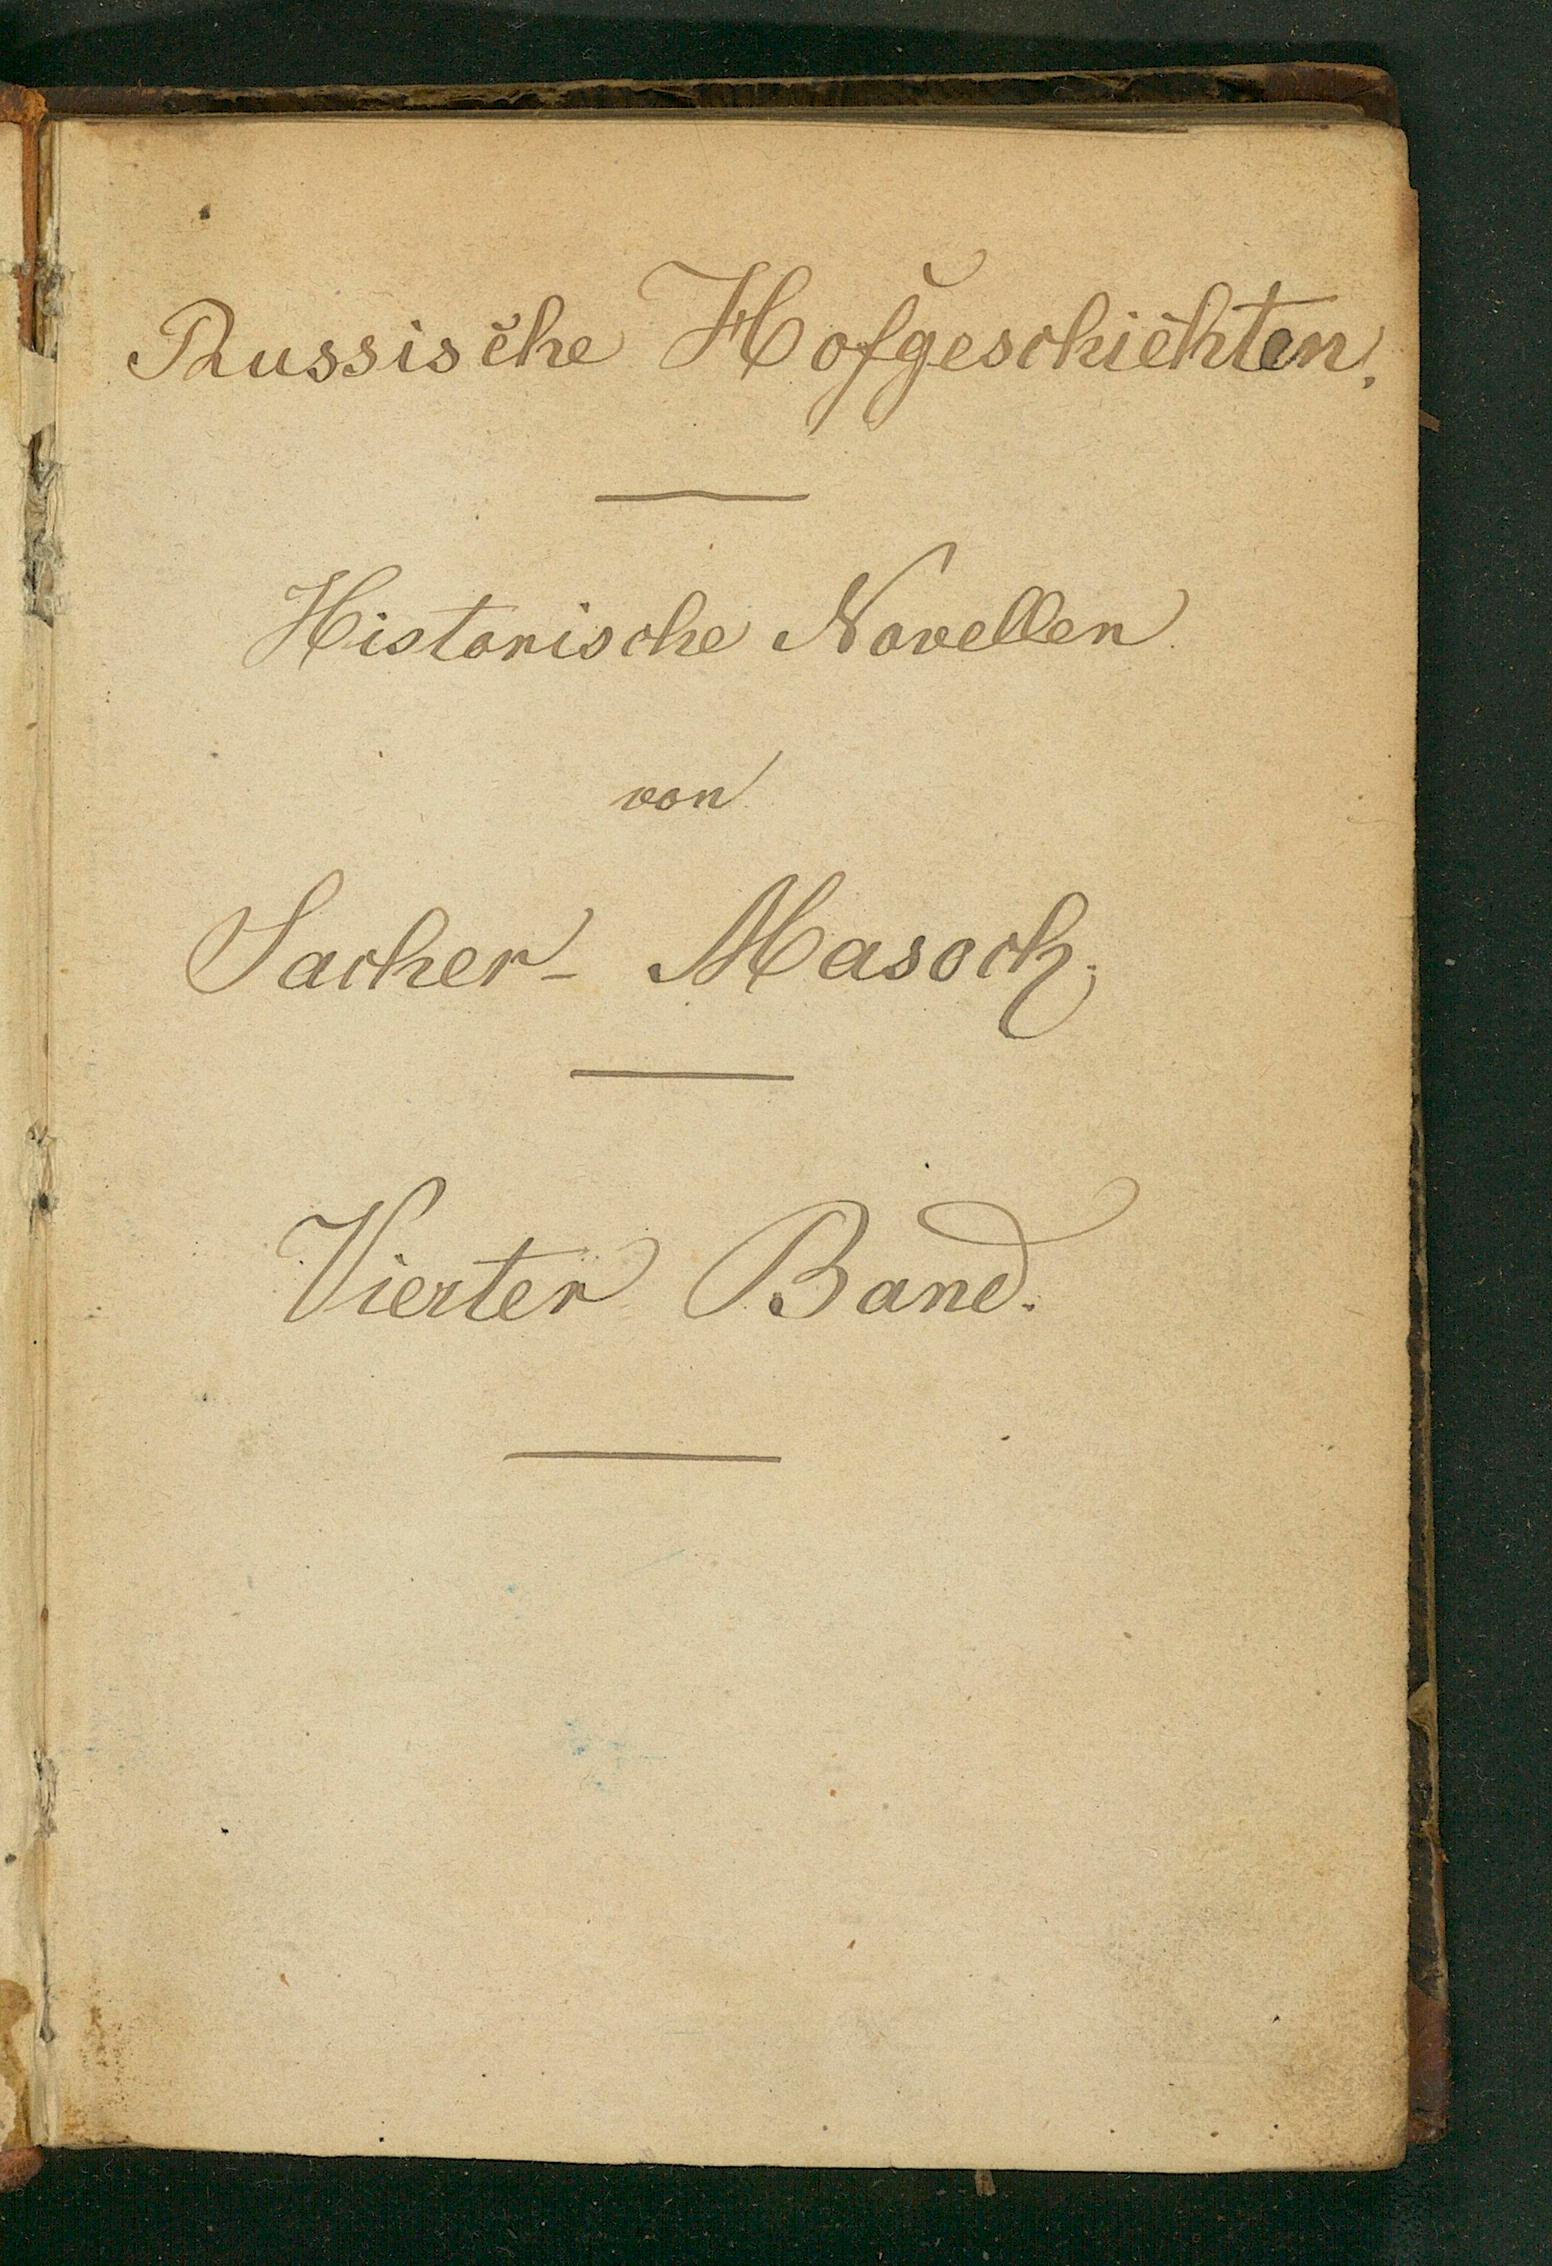 Russische Hofgeschichten.
Historische Novellen
von
Sacher-Masoch.
Vierter Band.